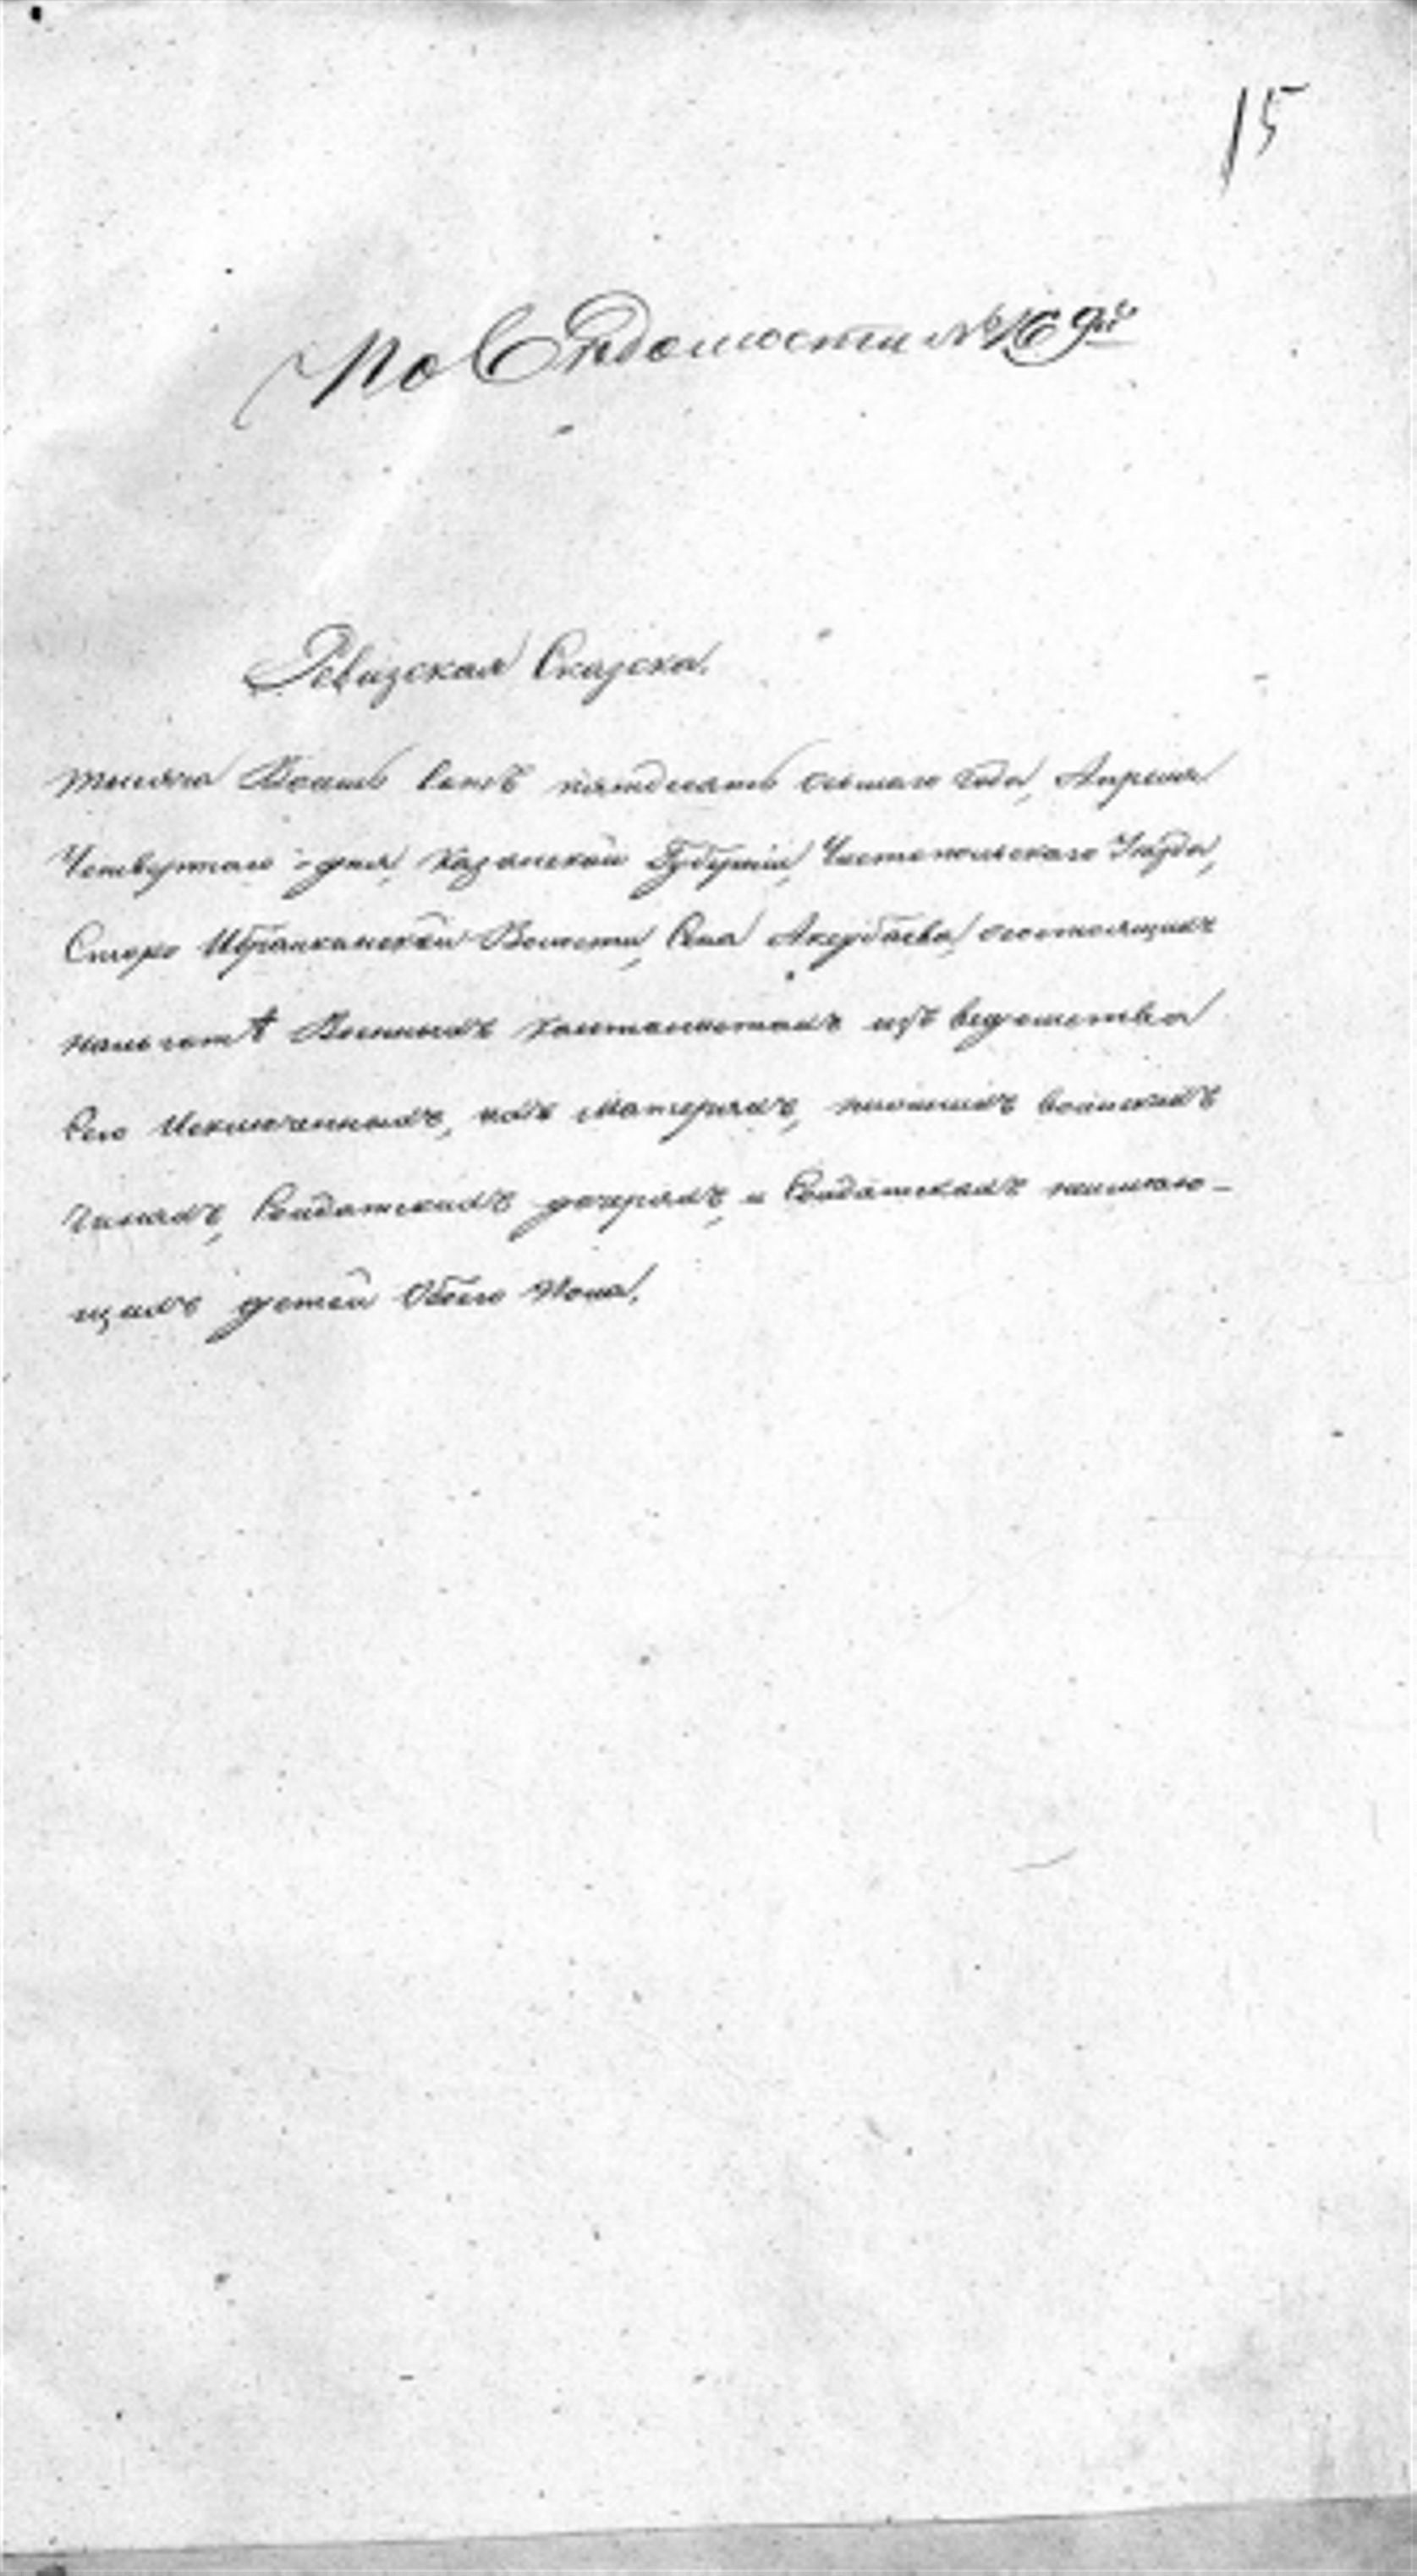 15
По Вѣдомости № 169й
Ревизская Сказка.
тысяча Восемь Сотъ пятдесятъ осьмаго года, Апреля
Четвертаго дня, Казанской Губерніи, Чистопольскаго Уѣзда,
Старо Ибрайкинской Волости, Села Аксубаева, состоящихъ
на Военныхъ Кантонистахъ изъ ведомства
Сего Исключенныхъ, ихъ Матеряхъ, нисшихъ воинскихъ
Чинахъ, Солдатскихъ дочеряхъ, и Солдаткахъ неимею-
щихъ детей Обоего Пола.